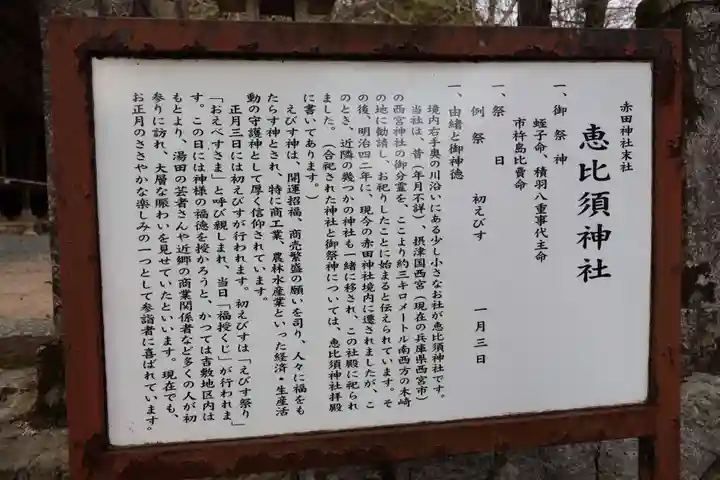 赤田神社末社
恵比須神社
一、御祭神
蛭子命、積羽八重事代主命
市杵島比賣命
一、祭日
例祭 初えびす 一月三日
一、由緒と御神徳
境内右手奥の川沿いにある少し小さなお社が恵比須神社です。
当社は、昔（年月不詳）、摂津国西宮（現在の兵庫県西宮市）
の西宮神社の御分霊を、ここより約三キロメートル南西方の木崎
の地に勧請し、お祀りしたことに始まると伝えられています。そ
の後、明治四二年に、現今の赤田神社境内に遷されましたが、こ
のとき、近隣の幾つかの神社も一緒に移され、この社殿に祀られ
ました。（合祀された神社と御祭神については、恵比須神社拝殿
に書いてあります。）
えびす神は、開運招福、商売繁盛の願いを司り、人々に福をも
たらす神とされ、特に商工業、農林水産業といった経済・生産活
動の守護神として厚く信仰されています。
正月三日には初えびすが行われます。初えびすは「えびす祭り」
「おえべすさま」と呼び親しまれ、当日「福授くじ」が行われま
す。この日には神様の福徳を授かろうと、かつては吉敷地区内は
もとより、湯田の芸者さんや近郷の商業関係者など多くの人が初
参りに訪れ、大層な賑わいを見せていたといいます。現在でも、
お正月のささやかな楽しみの一つとして参詣者に喜ばれています。